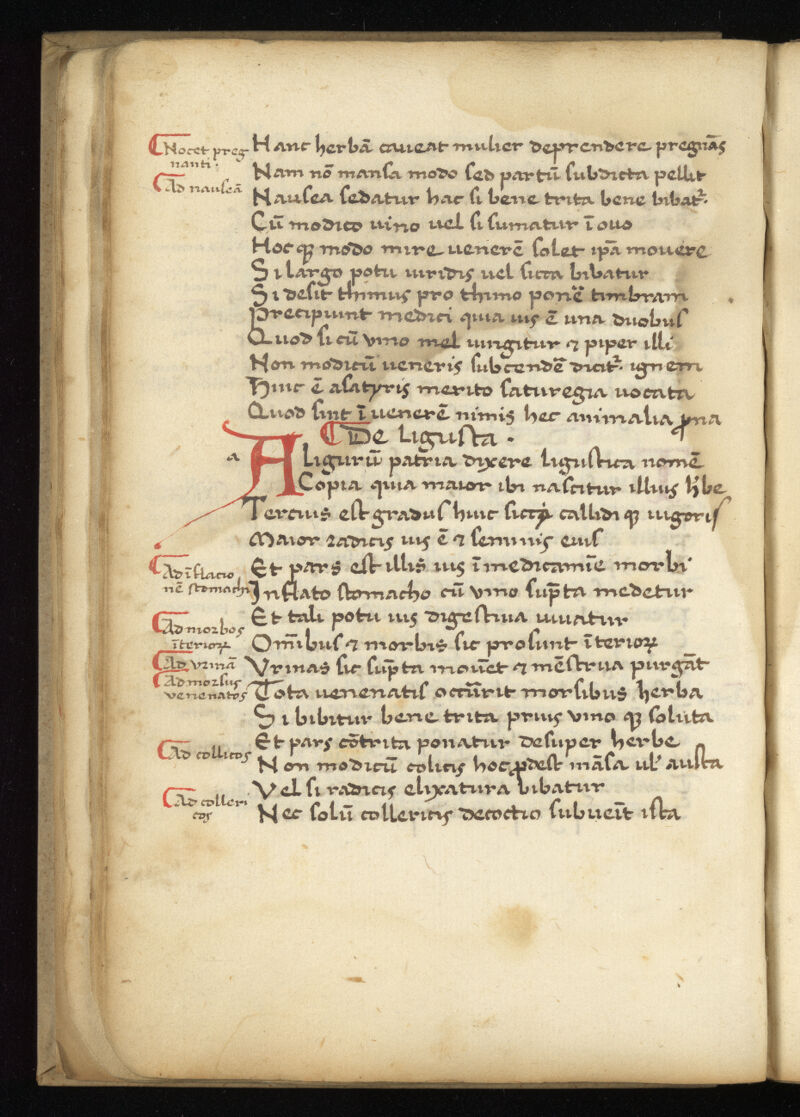 Nocet preg
nanti ·
Hanc herbā caveat mulier deprendere pregnās
Nam nō mansa modo sed partū subdicta pellit
Ad nauseā
Nausea sedatur hac si bene trita bene bibat᷑·
Cū modico uino uel si sumatur ī ouo
Hoc qꝫ modo mire uenerē solet ip̄a mouere
Si largo potu uiridis uel sicca bibatur
Si desit thimus pro thimo ponē timbram
Precipiunt medici quia uis ē una duobus
Quod si cū vino mel iungitur ⁊ piper illi
Non modicū ueneris subcendē dicit᷑· ignem
Huic ē a satyris merito saturegia uocata
Quod sint ī uenerē nimis hec animalia ꝓna
De ligusta ·
a
A Ligurū patria dixere ligustica nomē
Copia quia maior ibi nascitur illius h̄be
Tercius est gradus huic sicci callidi qꝫ uigoris
Maior radicis uis ē ⁊ seminis eius
Ad īflacio
nē stomachi
Et pars est illis uis ī medicamīe morbi
Inflato stomacho cū vino sūpta medetur
Ad morbos
īterioꝝ
Et tali potu uis digestiua iuuatur
Om̄ibus ⁊ morbis sic prosunt īterioꝝ
Ad vrinā
Vrinas sic sūpta mouet ⁊ mēstrua purgāt
Ad morsus
venenatos
Tota uenenatis occūrit morsibus herba
Si bibitur bene trita prius vino qꝫ soluta
Et pars cōtrita ponatur desuper herbe
Ad collicos
Non modicū colicis hoc ꝓdest māsa ul' austa
Vel si radicis elixatura bibatur
Ad colleri
cos
Nec solū collericis decoctio subueīt ista